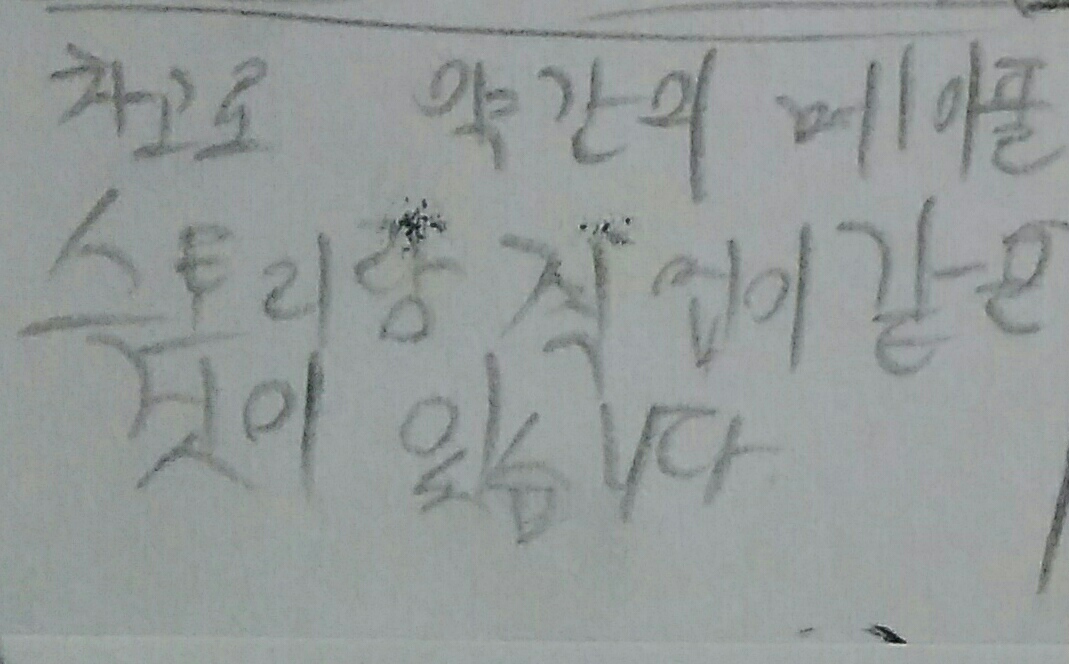 참고로 약간의 메이플
스토리랑 직업이 같은
것이 있습니다